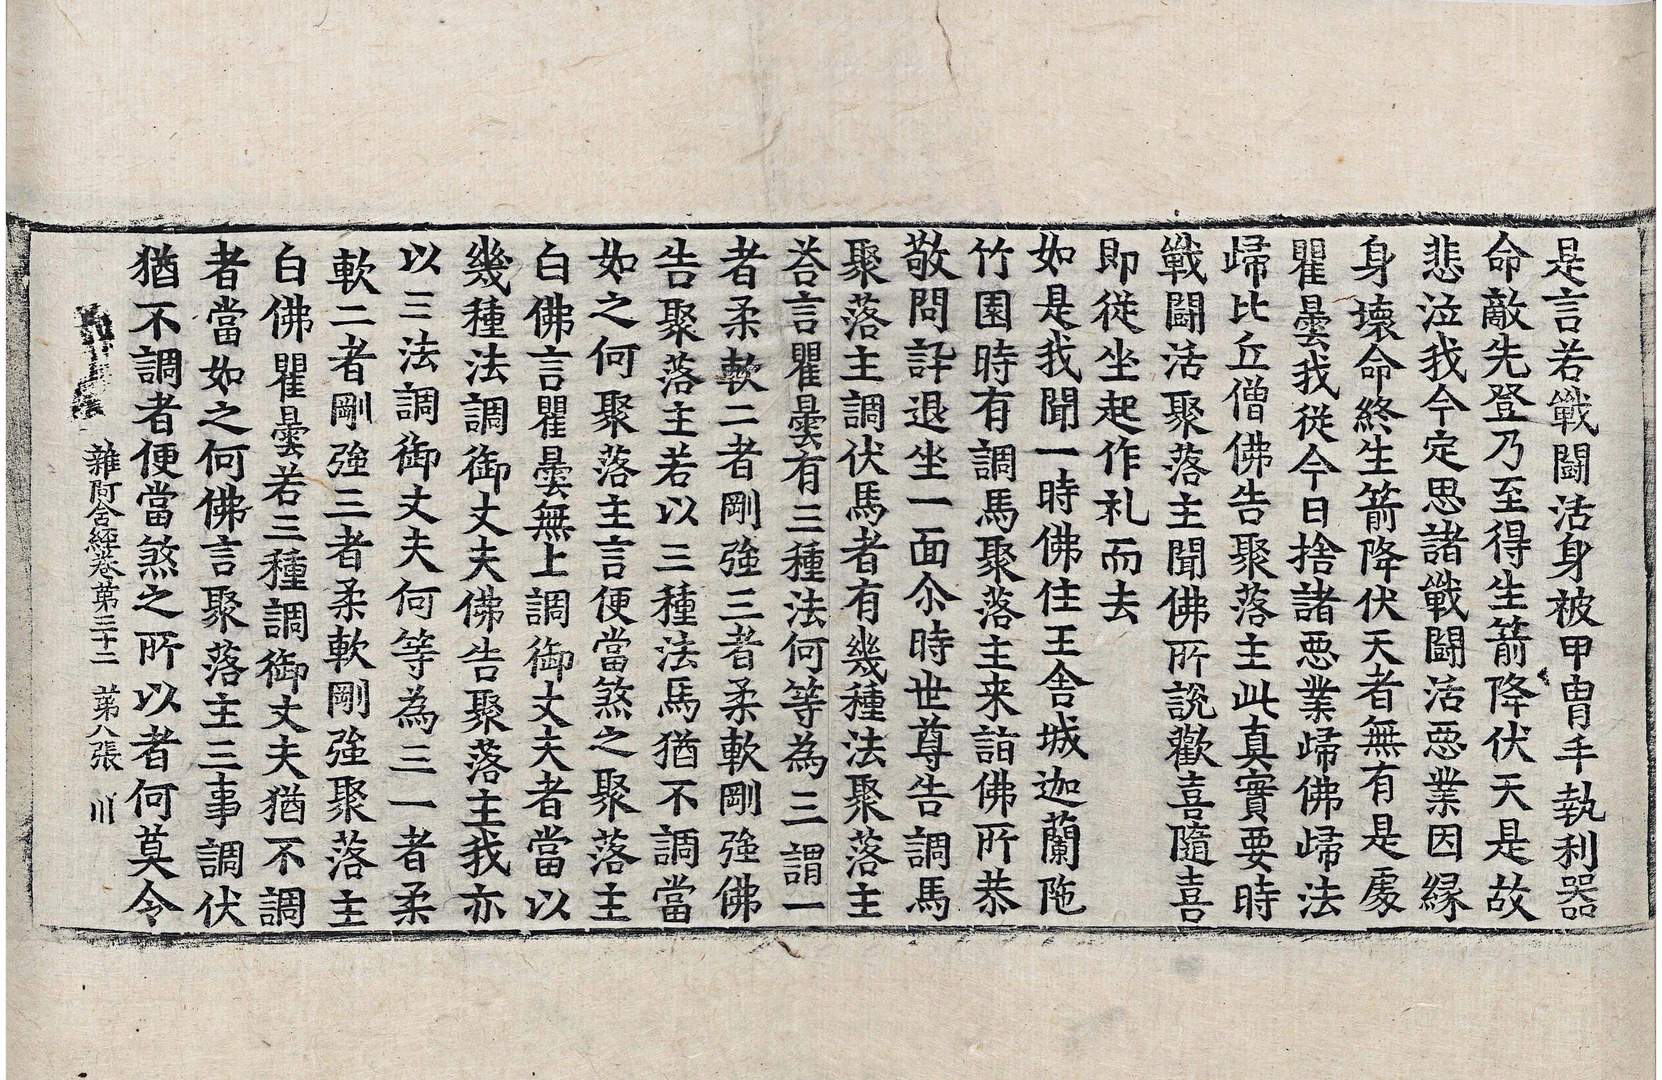 是言若戰鬪活身被甲冑手執利器
命敵先登乃至得生箭降伏天是故
悲泣我今定思諸戰鬪活惡業因縁
身壞命終生箭降伏天者無有是處
瞿曇我從今日捨諸惡業歸佛歸法
歸比丘僧佛告聚落主此真實要時
戰鬪活聚落主聞佛所說歡喜隨喜
即從坐起作礼而去
如是我聞一時佛住王舍城迦蘭陁
竹園時有調馬聚落主来詣佛所恭
敬問訊退坐一面尒時世尊告調馬
聚落主調伏馬者有幾種法聚落主
荅言瞿曇有三種法何等為三謂一
者柔軟二者剛強三者柔軟剛強佛
告聚落主若以三種法馬猶不調當
如之何聚落主言便當煞之聚落主
白佛言瞿曇無上調御丈夫者當以
幾種法調御丈夫佛告聚落主我亦
以三法調御丈夫何等為三一者柔
軟二者剛強三者柔軟剛強聚落主
白佛瞿曇若三種調御丈夫猶不調
者當如之何佛言聚落主三事調伏
猶不調者便當煞之所以者何莫令
雜阿含經卷第三十二 苐八張